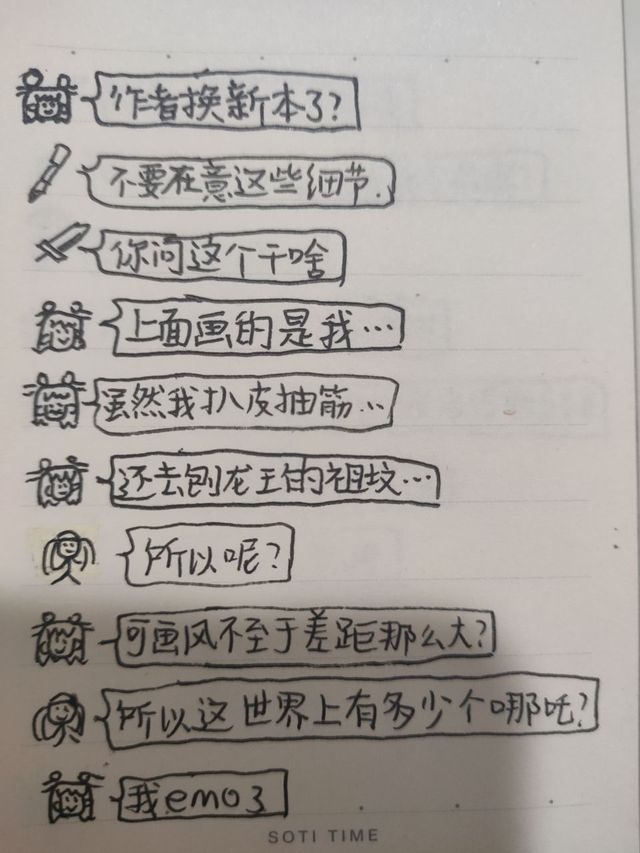 作者换新本了?
不要在意这些细节.
你问这个干啥
上面画的是我…
虽然我扒皮抽筋…
还去刨龙王的祖坟…
所以呢?
可画风不至于差距那么大?
所以这世界上有多少个哪吒?
我emo了
SOTI TIME